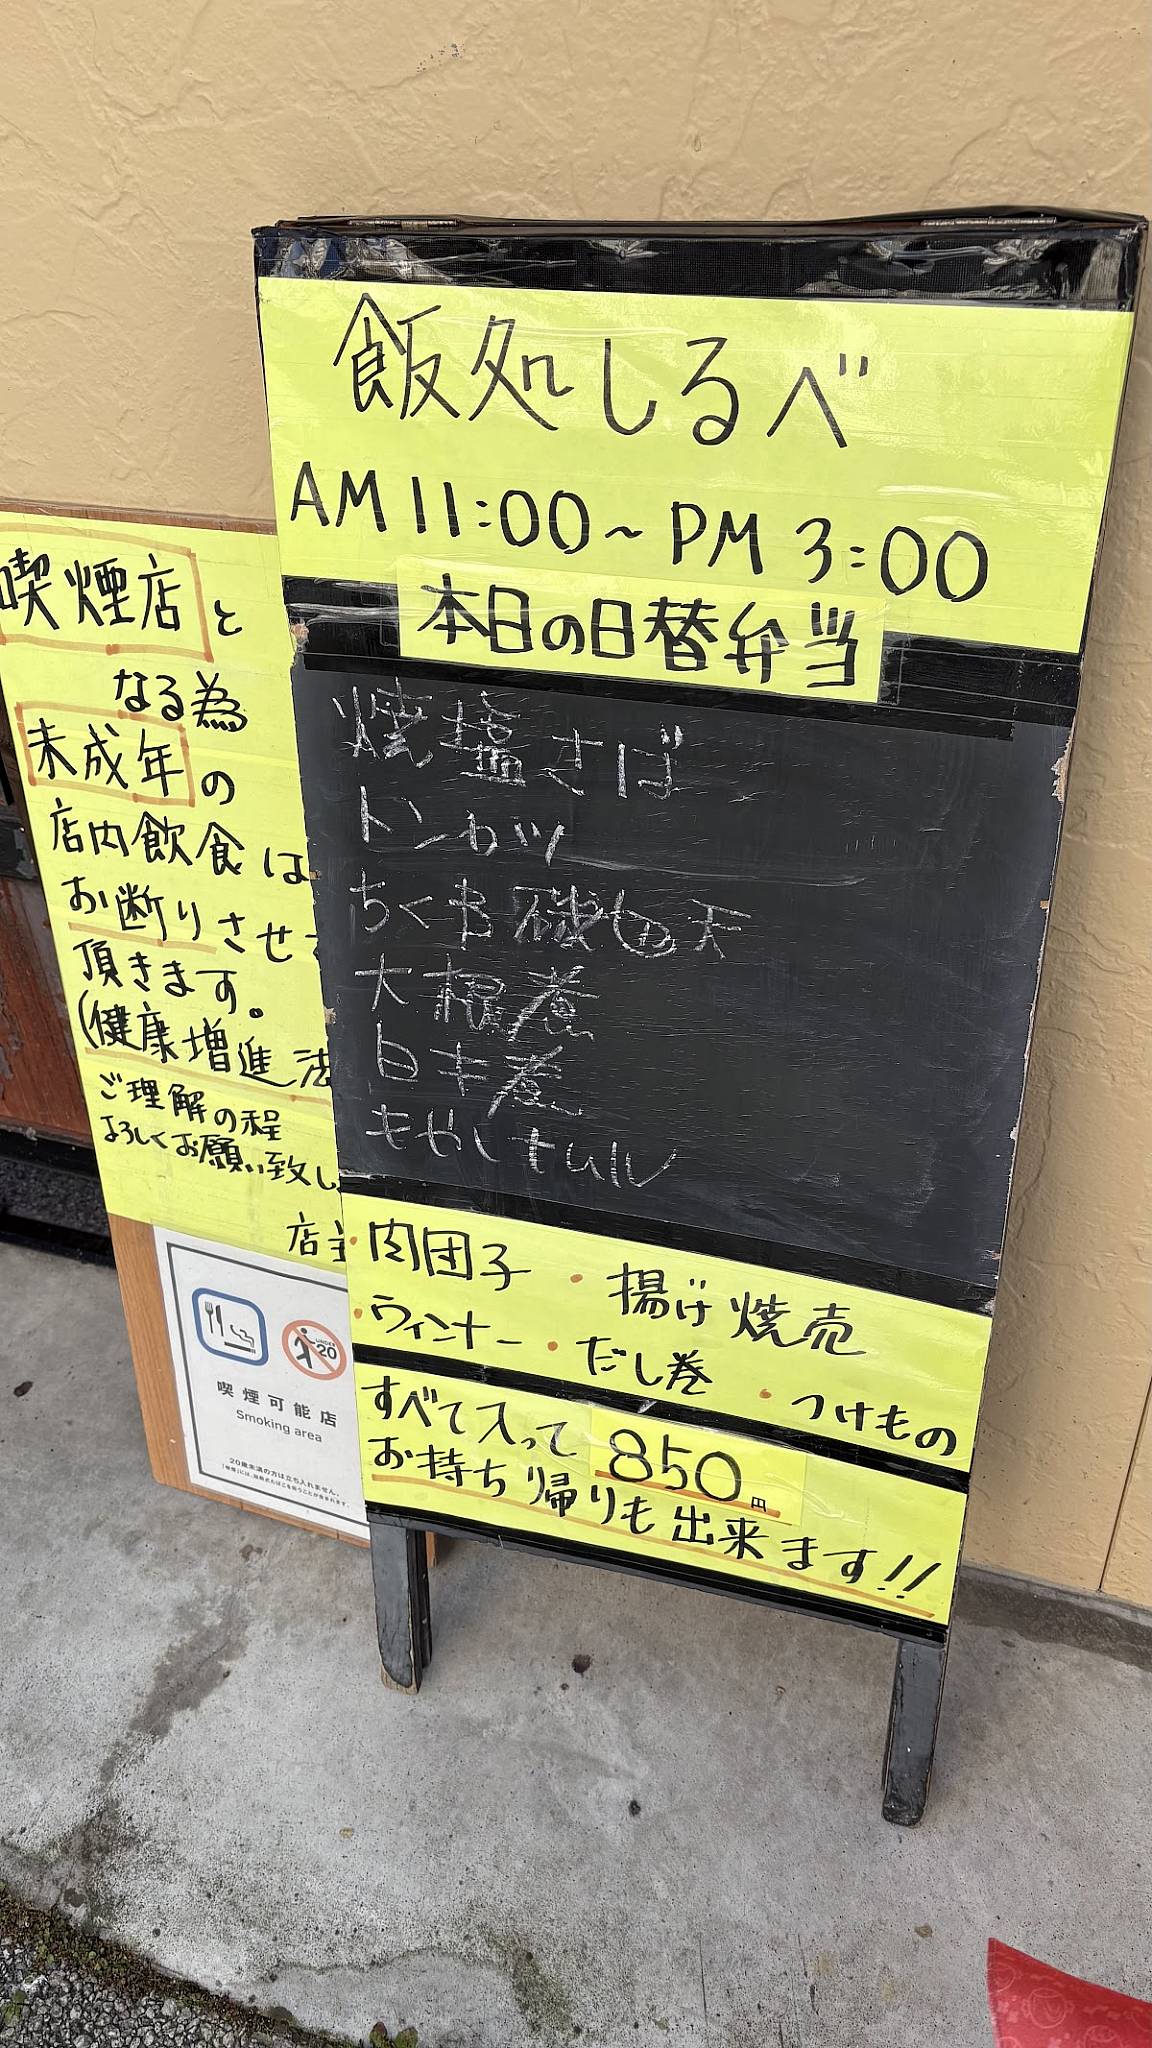 飯処しるべ
AM 11:00~PM 3:00
本日の日替弁当
焼塩さば
トンカツ
ちくわ磯のり天
大根煮
白キ煮
もやしナムル
・肉団子 ・揚げ焼売
・ウィンナー ・だし巻 ・つけもの
すべて入って 850円
お持ち帰りも出来ます!!
喫煙店と
なる為
未成年の
店内飲食は
お断りさせ
頂きます。
(健康増進法
ご理解の程
よろしくお願い致し
店主
UNDER 20
喫煙可能店
Smoking area
20歳未満の方は立ち入れません。